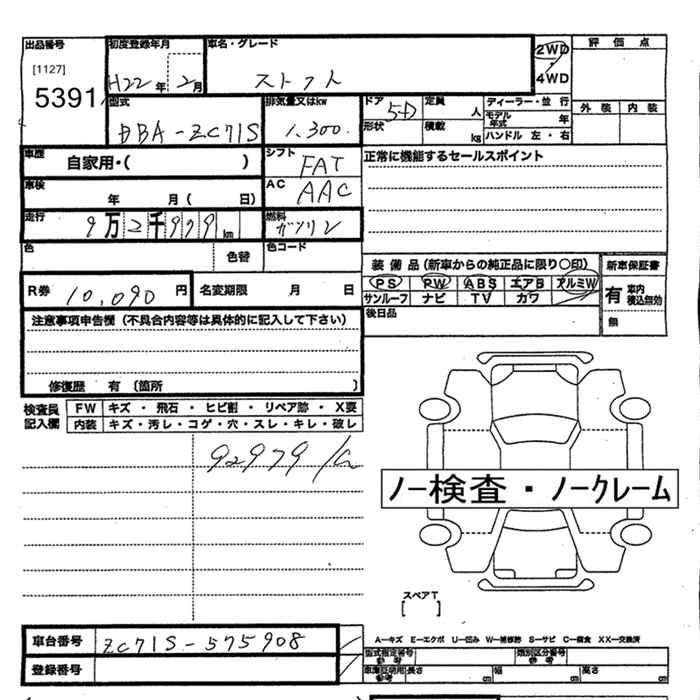 出品番号 初度登録年月 車名・グレード 2WD 評価点
[1127] H22年 2月 4WD
5391 外装 内装
型式 排気量又はkw ドア 5D 定員 人 ディーラー・並行
DBA-ZC71S 1,300 形状 積載 kg モデル年式 年
ハンドル 左・右
車歴 自家用・( ) シフト FAT 正常に機能するセールスポイント
車検 年 月( 日) AC AAC
走行 9万2千979km 燃料 ガソリン
色 色替 色コード
装備品(新車からの純正品に限り○印) 新車保証書
R券 10,090円 名変期限 月 日 PS PW ABS エアB アルミW 有 車内 積込無効
サンルーフ ナビ TV カワ
注意事項申告欄(不具合内容等は具体的に記入して下さい) 後日品 無
修復歴 有 〔箇所 〕
検査員 FW キズ・飛石・ヒビ割・リペア跡・X要
記入欄 内装 キズ・汚レ・コゲ・穴・スレ・キレ・破レ
92979
ノー検査・ノークレーム
スペアT
[ ]
車台番号 ZC71S-575908 A―キズ E―エクボ U―凹み W―補修跡 S―サビ C―腐食 XX―交換済
登録番号 型式指定番号 参考 類別区分番号 参考
車庫証明用 参考 長さ cm 幅 cm 高さ cm